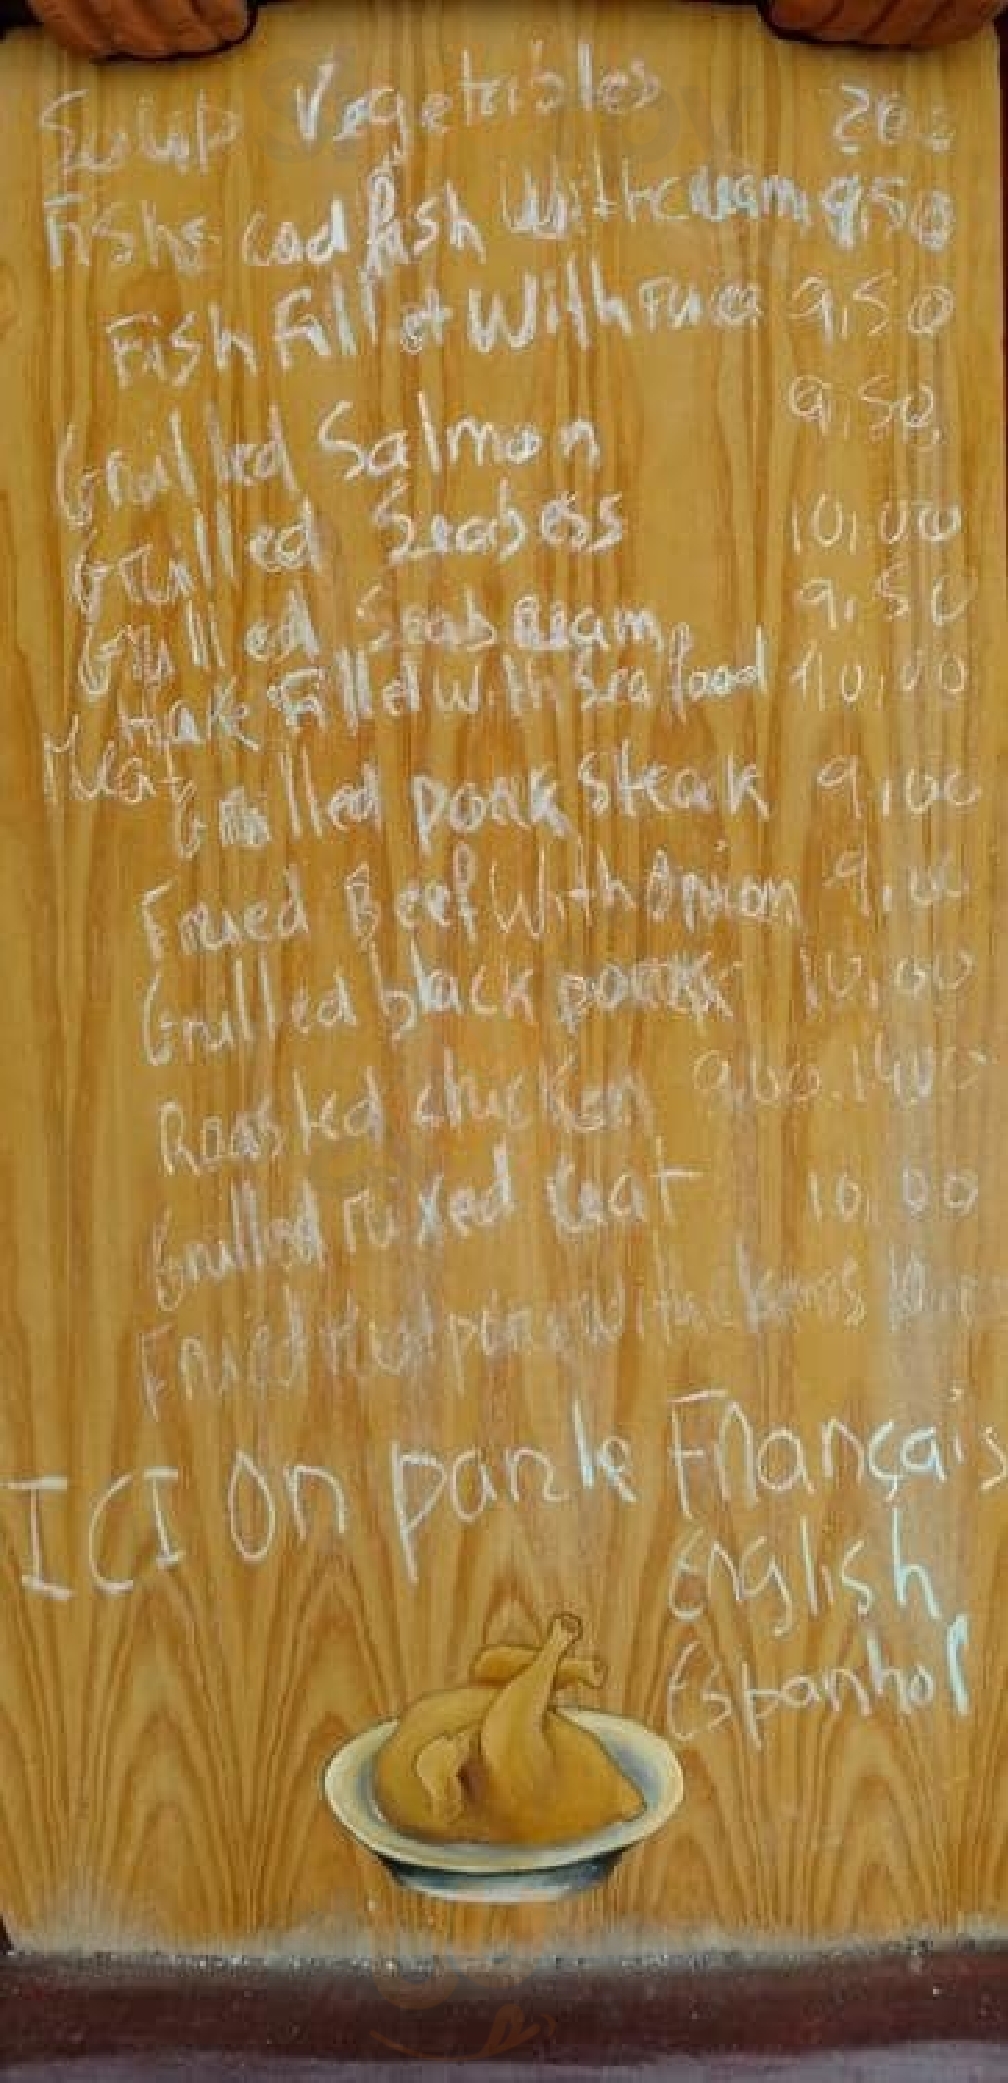 Soup Vegetables 200
Fishe Codfish With cream 9,50
Fish Fillet With Rice 9,50
Grilled Salmon 9,50
Grilled Seabess 10,00
Grilled Seabream 9,50
Hake Fillet With Sea food 10,00
Meat
Grilled pork steak 9,00
Fried Beef With Onion 9,00
Grilled black pork 10,00
Roasted chicken 9,00.14,00
Grilled Mixed Meat 10,00
Fried pork With clams
ICI On parle Français
English
Espanhol